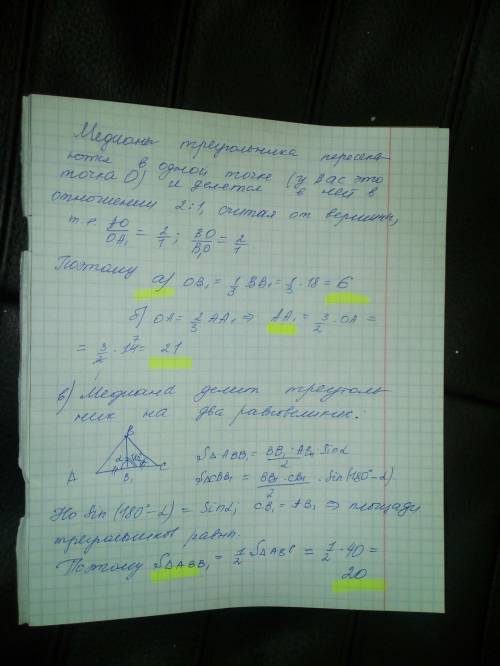 Медианы треугольника пересека-
ются в одной точке (у Вас это
точка O) и делятся в ней в
отношении 2:1, считая от вершины,
т.е. AO/OA₁ = 2/1; BO/B₁O = 2/1
Поэтому а) OB₁ = 1/3 BB₁ = 1/3 · 18 = 6
б) OA = 2/3 AA₁ ⇒ AA₁ = 3/2 · OA =
= 3/2 · 14 = 21
в) Медиана делит треуголь
ник на два равновелик:
B
A B₁ C
S△ABB₁ = BB₁ · AB₁/2 Sinα
S△CBB₁ = BB₁ · CB₁/2 · Sin(180°-α)
Но Sin(180°-α) = Sinα; CB₁ = AB₁ ⇒ площади
треугольников равны.
Поэтому S△ABB₁ = 1/2 S△ABC = 1/2 · 40 =
20